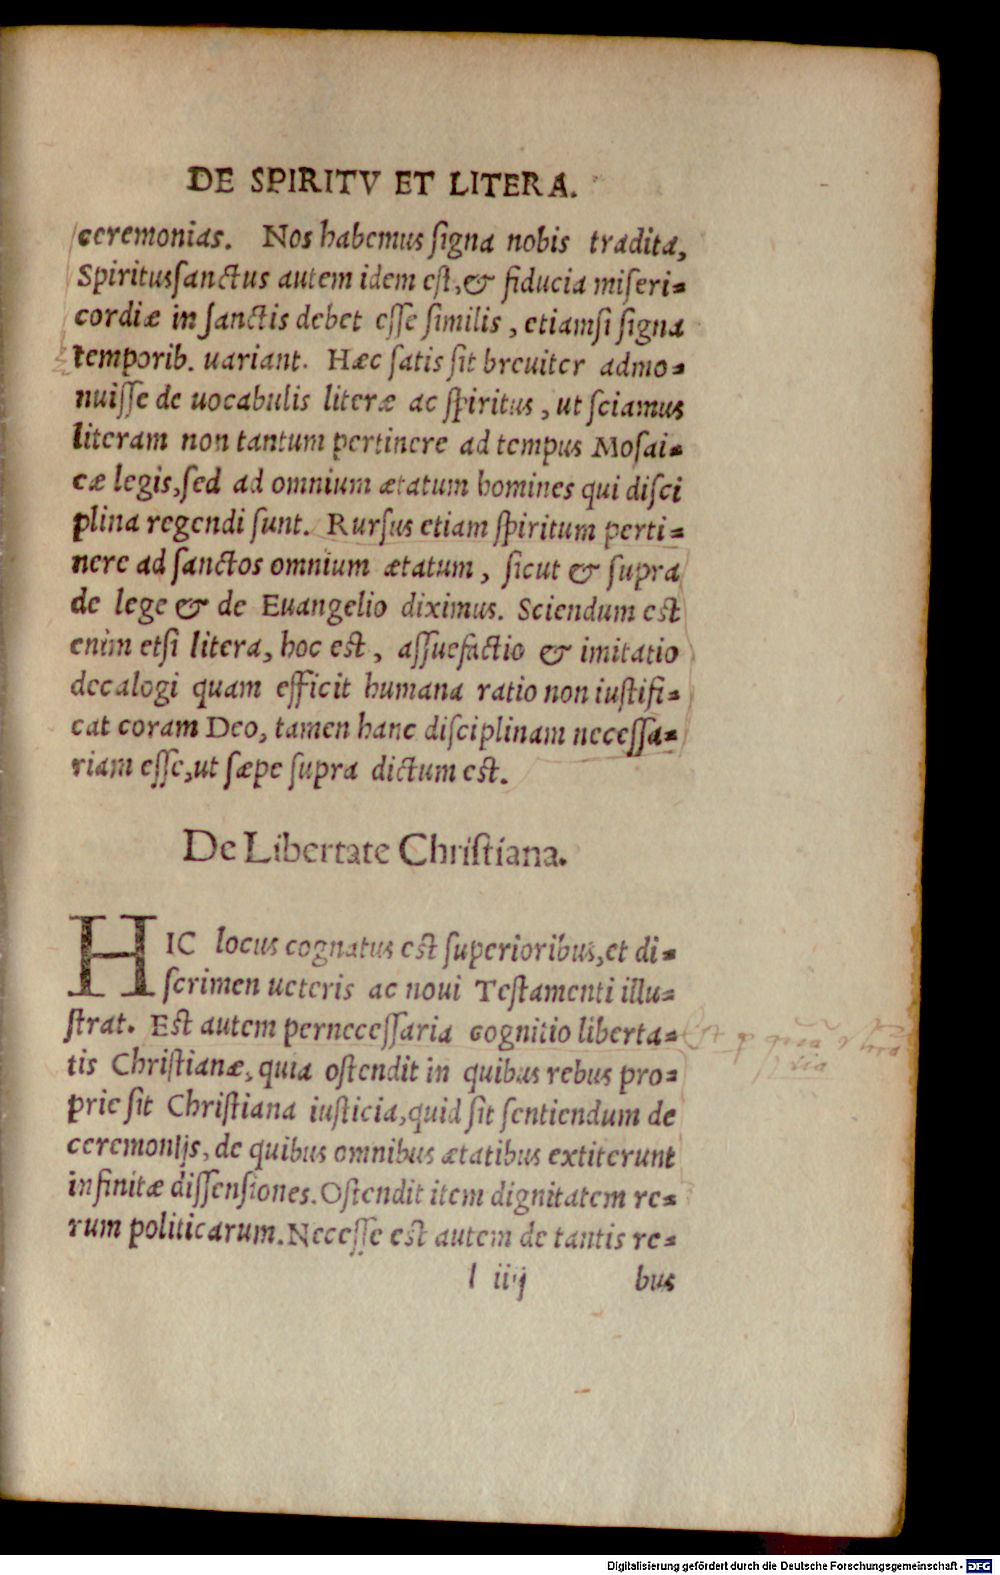 DE SPIRITV ET LITERA.
ceremonias. Nos habemus ſigna nobis tradita,
Spiritusſanctus autem idem eſt, & fiducia miſeri=
cordiæ in ſanctis debet eſſe ſimilis, etiamſi ſigna
temporib. uariant. Hæc ſatis ſit breuiter admo=
nuiſſe de uocabulis literæ ac ſpiritus, ut ſciamus
literam non tantum pertinere ad tempus Moſai=
cæ legis, ſed ad omnium ætatum homines qui diſci
plina regendi ſunt. Rurſus etiam ſpiritum perti=
nere ad ſanctos omnium ætatum, ſicut & ſupra
de lege & de Euangelio diximus. Sciendum eſt
enim etſi litera, hoc eſt, aſſuefactio & imitatio
decalogi quam efficit humana ratio non iuſtifi=
cat coram Deo, tamen hanc diſciplinam neceſſa=
riam eſſe, ut ſæpe ſupra dictum eſt.
De Libertate Chriſtiana.
HIC locus cognatus eſt ſuperioribus, et di=
ſcrimen ueteris ac noui Teſtamenti illu=
ſtrat. Eſt autem perneceſſaria cognitio liberta=
tis Chriſtianæ, quia oſtendit in quibus rebus pro=
prie ſit Chriſtiana iuſticia, quid ſit ſentiendum de
ceremonijs, de quibus omnibus ætatibus extiterunt
infinitæ diſſenſiones. Oſtendit item dignitatem re=
rum politicarum. Neceſſe eſt autem de tantis re=
l iiij bus
Digitalisierung gefördert durch die Deutsche Forschungsgemeinschaft - DFG